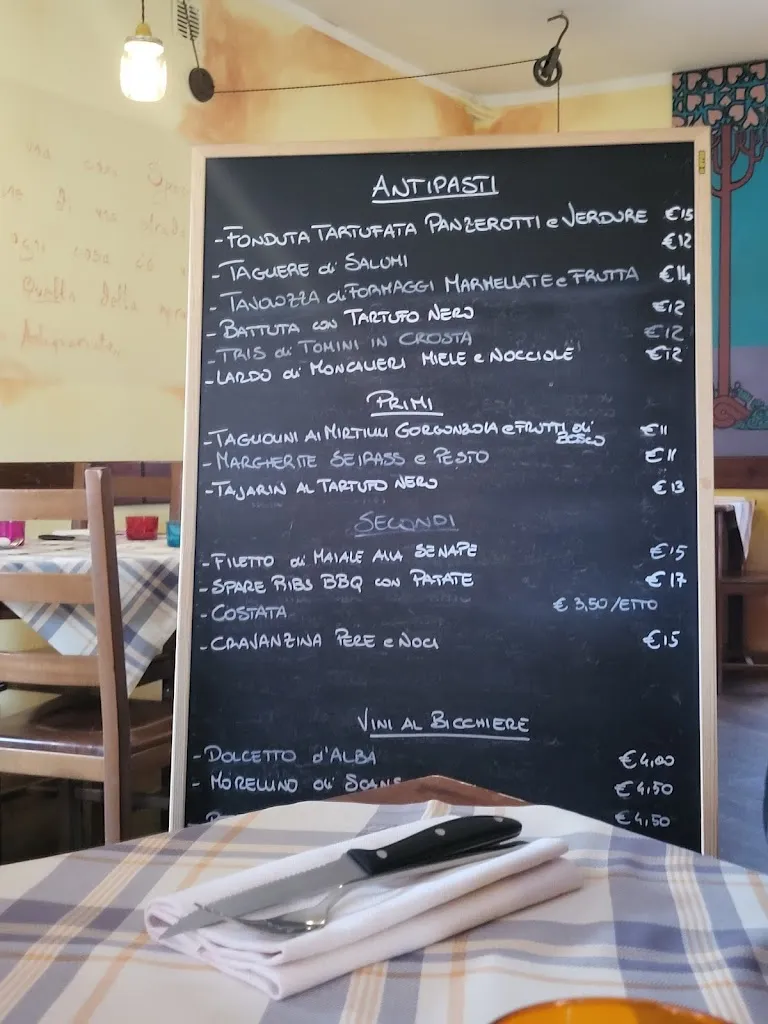 ANTIPASTI
- FONDUTA TARTUFATA PANZEROTTI e VERDURE €15
- TAGLIERE di SALUMI €12
- TAVOLOZZA di FORMAGGI MARMELLATE e FRUTTA €14
- BATTUTA con TARTUFO NERO €12
- TRIS di TOMINI IN CROSTA €12
- LARDO di MONCALIERI MIELE e NOCCIOLE €12
PRIMI
- TAGLIOLINI AI MIRTILLI GORGONZOLA e FRUTTI di BOSCO €11
- MARGHERITE SEIRASS e PESTO €11
- TAJARIN AL TARTUFO NERO €13
SECONDI
- FILETTO di MAIALE ALLA SENAPE €15
- SPARE RIBS BBQ con PATATE €17
- COSTATA €3,50/ETTO
- CRAVANZINA PERE e NOCI €15
VINI AL BICCHIERE
- DOLCETTO d'ALBA €4,00
- MORELLINO di SCANS €4,50
€4,50